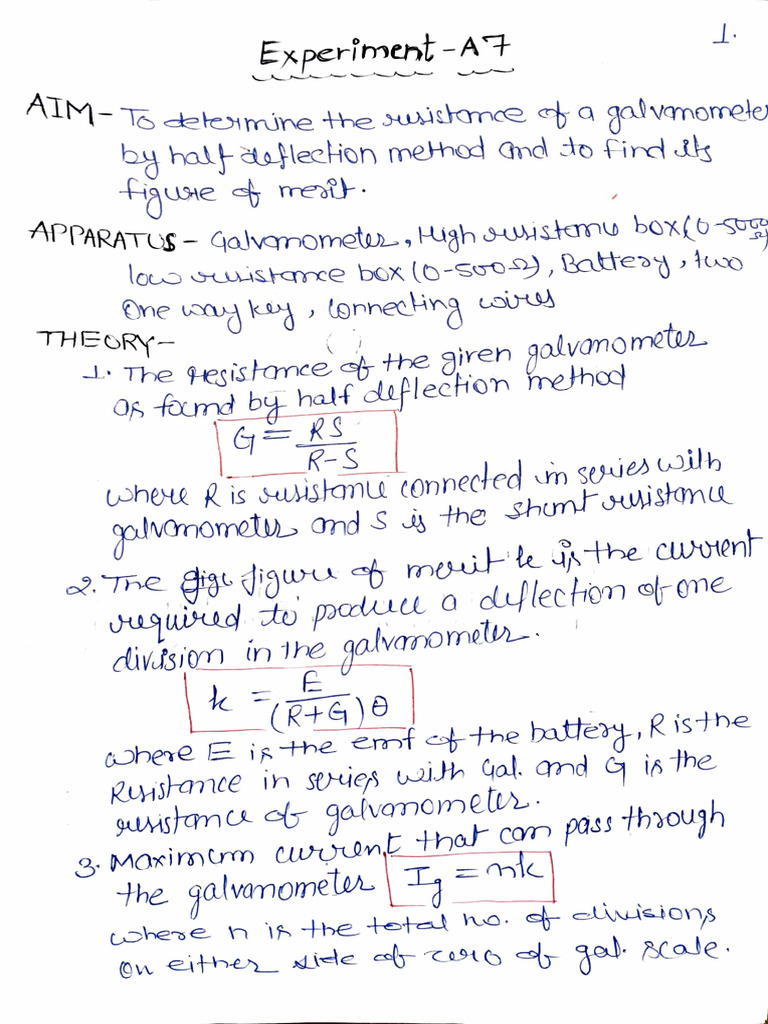 1.
Experiment - A7
AIM - To determine the resistance of a galvanometer
by half deflection method and to find its
figure of merit.
APPARATUS - Galvanometer, High resistance box (0-5000Ω)
low resistance box (0-500Ω), Battery, two
One way key, connecting wires
THEORY -
1. The resistance of the given galvanometer
as found by half deflection method
G = RS / R-S
where R is resistance connected in series with
galvanometer and S is the shunt resistance
2. The figure of merit k is the current
required to produce a deflection of one
division in the galvanometer.
k = E / (R+G)θ
where E is the emf of the battery, R is the
Resistance in series with Gal. and G is the
resistance of galvanometer.
3. Maximum current that can pass through
the galvanometer Ig = nk
where n is the total no. of divisions
on either side of zero of gal. scale.